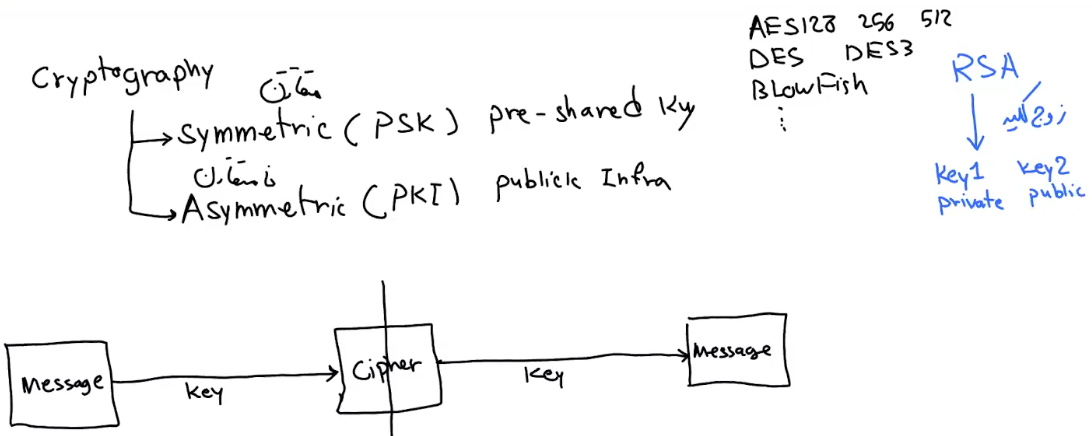 Cryptography
متقارن
Symmetric (PSK) pre-shared Key
نامتقارن
Asymmetric (PKI) publick Infra
AES128 256 512
DES DES3
BlowFish
⋮
RSA
زوج کلید
Key1 Key2
private public
Message
Key
Cipher
Key
Message